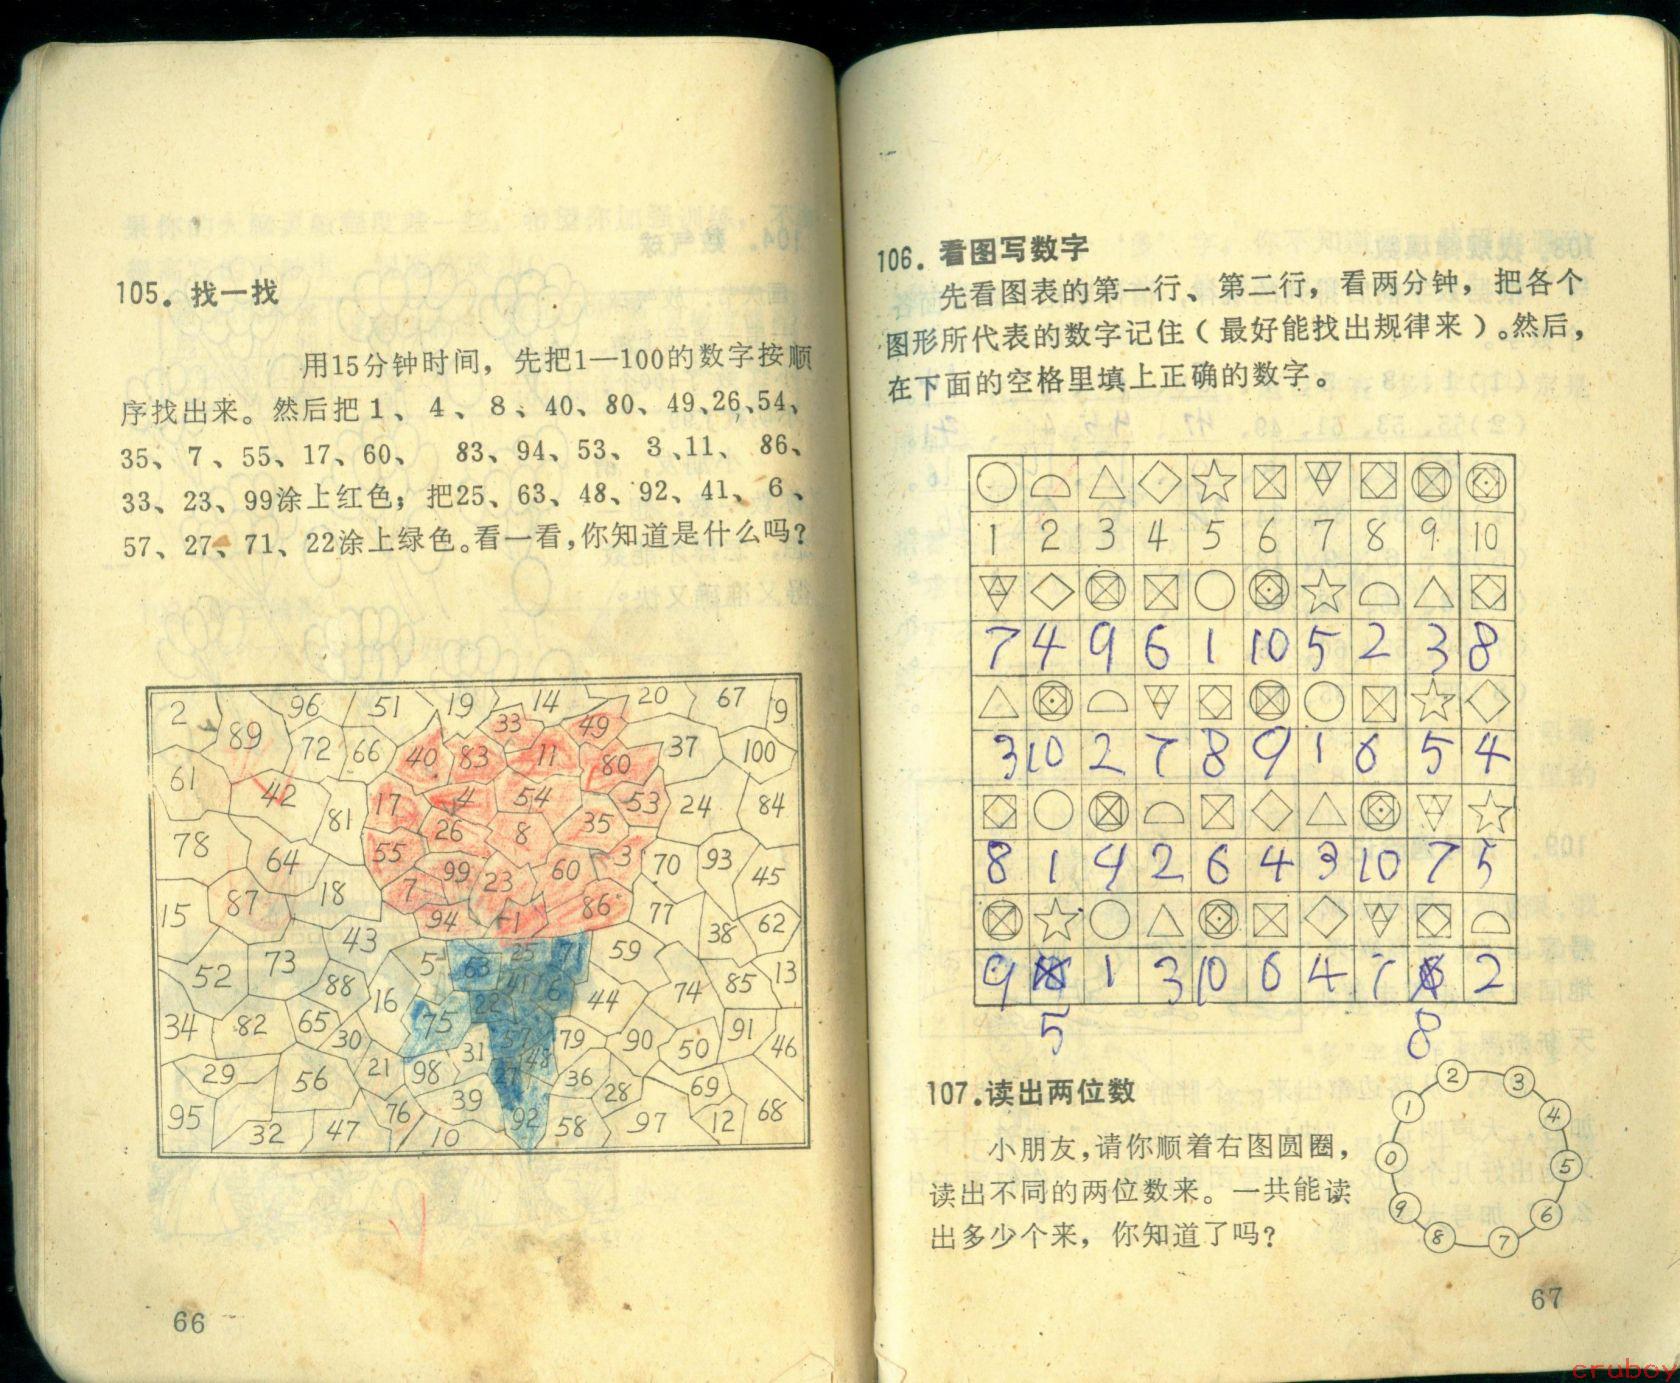 105. 找一找
用15分钟时间，先把1—100的数字按顺
序找出来。然后把1、4、8、40、80、49、26、54、
35、7、55、17、60、 83、94、53、3、11、86、
33、23、99涂上红色；把25、63、48、92、41、6、
57、27、71、22涂上绿色。看一看，你知道是什么吗？
2 96 51 19 14 20 67 9
89 72 66 40 83 33 11 49 80 37 100
61 42 81 17 4 54 53 24 84
78 64 55 26 8 35 3 70 93 45
15 87 18 7 99 23 60 86 77 38 62
43 94 1
52 73 88 16 5 63 25 71 59 44 74 85 13
41 6 22
34 82 65 30 75 57 79 90 50 91 46
29 56 21 98 31 27 48 36 28 69
95 32 47 76 10 39 92 58 97 12 68
66
106. 看图写数字
先看图表的第一行、第二行，看两分钟，把各个
图形所代表的数字记住（最好能找出规律来）。然后，
在下面的空格里填上正确的数字。
1 2 3 4 5 6 7 8 9 10
7 4 9 6 1 10 5 2 3 8
3 10 2 7 8 9 1 6 5 4
8 1 9 2 6 4 3 10 7 5
9 1 3 10 6 4 7 2
5 8
107. 读出两位数
小朋友，请你顺着右图圆圈，
读出不同的两位数来。一共能读
出多少个来，你知道了吗？
0 1 2 3 4 5 6 7 8 9
67
cruboy